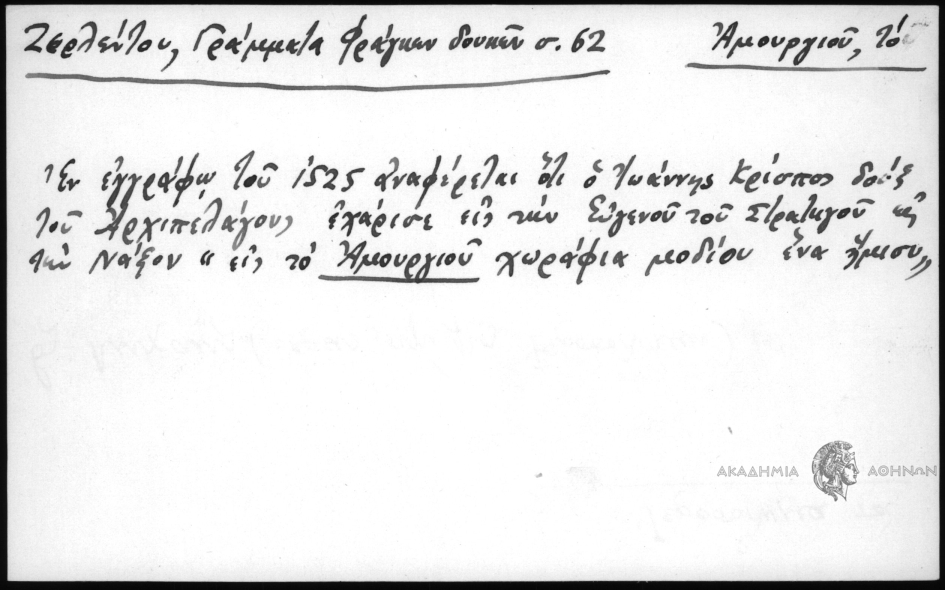 Ζερλέντου, Γράμματα Φράγκων δουκῶν σ. 62
Ἀμουργιοῦ, τό
Ἐν ἐγγράφῳ τοῦ 1525 ἀναφέρεται ὅτι ὁ Ἰωάννης Κρίσπος δούξ
τοῦ Ἀρχιπελάγους ἐχάρισε εἰς τὴν Εὐγενοῦ τοῦ Στρατηγοῦ εἰς
τὴν Νάξον " εἰς τὸ Ἀμουργιοῦ χωράφια μοδίου ἕνα ἥμισυ„
ΑΚΑΔΗΜΙΑ ΑΘΗΝΩΝ